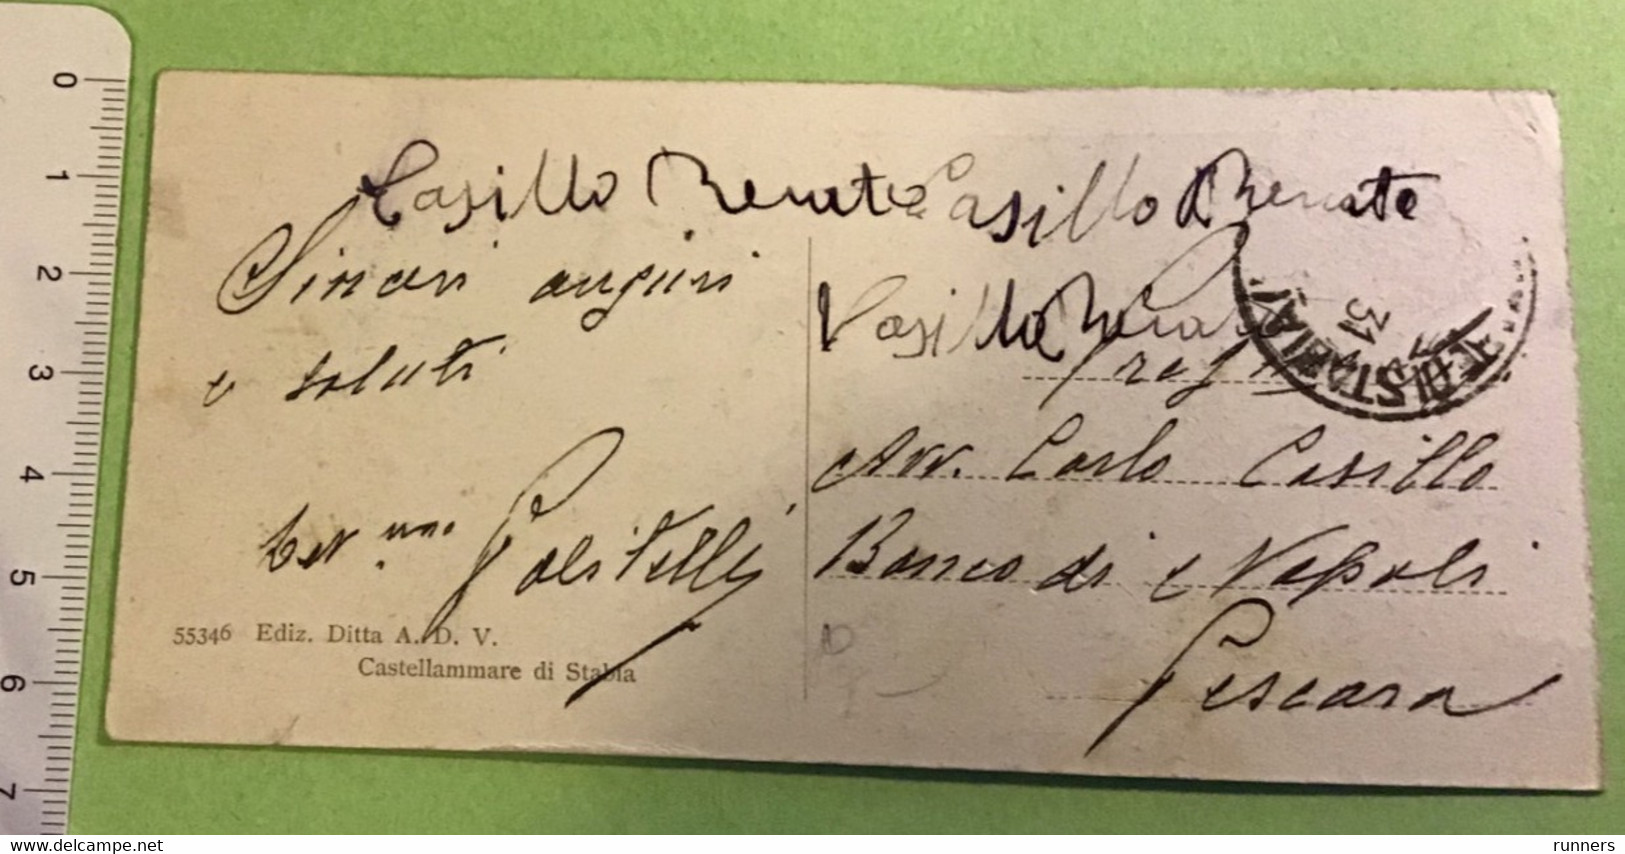 Casillo Renato Casillo Renato
Casillo Renato
Sinceri auguri
e saluti
Politelli
55346 Ediz. Ditta A. D. V.
Castellammare di Stabia
Avv. Carlo Casillo
Banco di Napoli
Pescara
DI STABIA
31
0
1
2
3
4
5
6
7
delcampe.net
runners